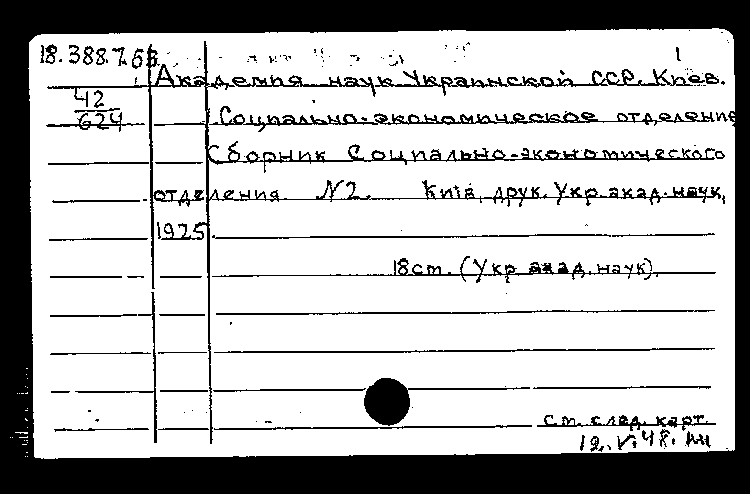 18.388.7.63 1
Академия наук Украинской ССР. Киев.
42
624
Социально-экономическое отделение
Сборник Социально-экономического
отделения. N2. Київ, друк. Укр. акад. наук,
1925.
18 ст. (Укр. акад. наук).
Ст. след. карт.
12.V.48.